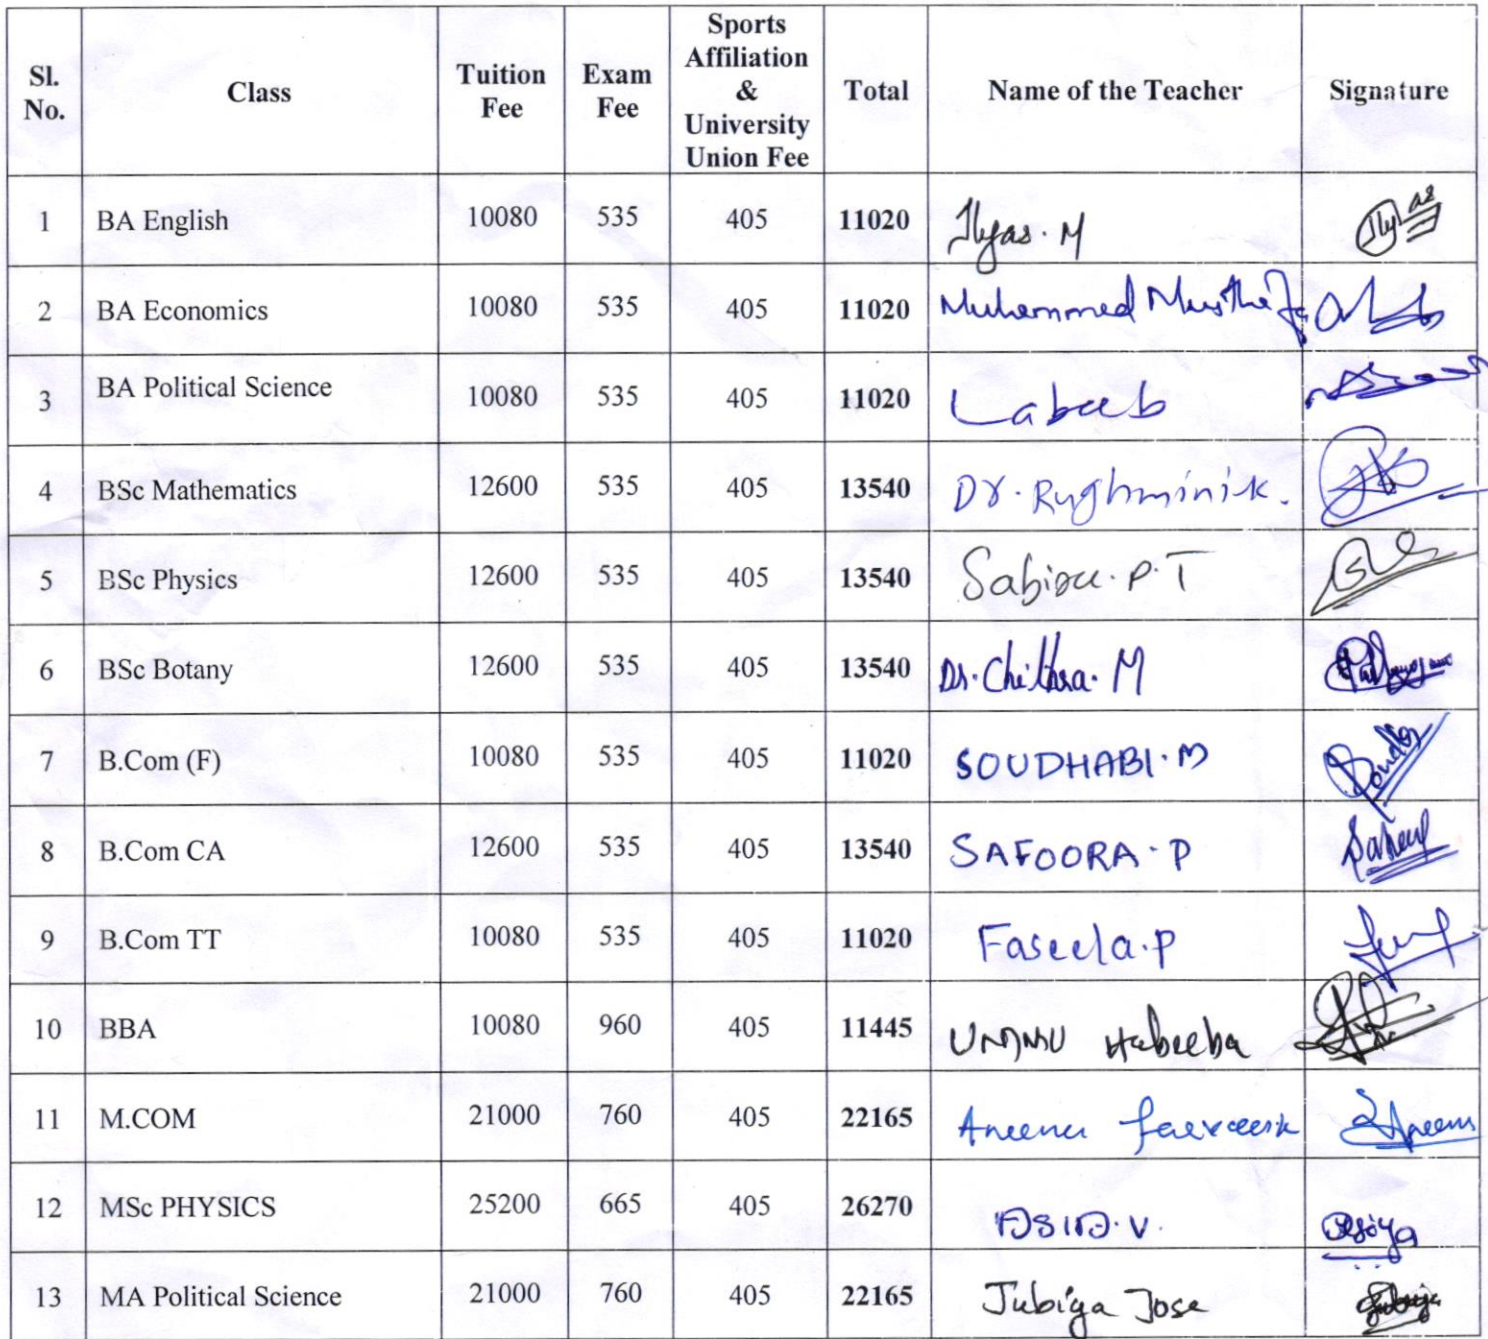 Sl. No. Class Tuition Fee Exam Fee Sports Affiliation & University Union Fee Total Name of the Teacher Signature
1 BA English 10080 535 405 11020 Ilyas. M
2 BA Economics 10080 535 405 11020 Muhammed Musthafa
3 BA Political Science 10080 535 405 11020 Labeeb
4 BSc Mathematics 12600 535 405 13540 Dr. Rughmini.k.
5 BSc Physics 12600 535 405 13540 P.T
6 BSc Botany 12600 535 405 13540 Dr. Chithra. M
7 B.Com (F) 10080 535 405 11020 SOUDHABI. M
8 B.Com CA 12600 535 405 13540 SAFOORA. P
9 B.Com TT 10080 535 405 11020 Faseela.P
10 BBA 10080 960 405 11445 UMMU Habeeba
11 M.COM 21000 760 405 22165
12 MSc PHYSICS 25200 665 405 26270 ASIA. V. Asiya
13 MA Political Science 21000 760 405 22165 Jubiya Jose